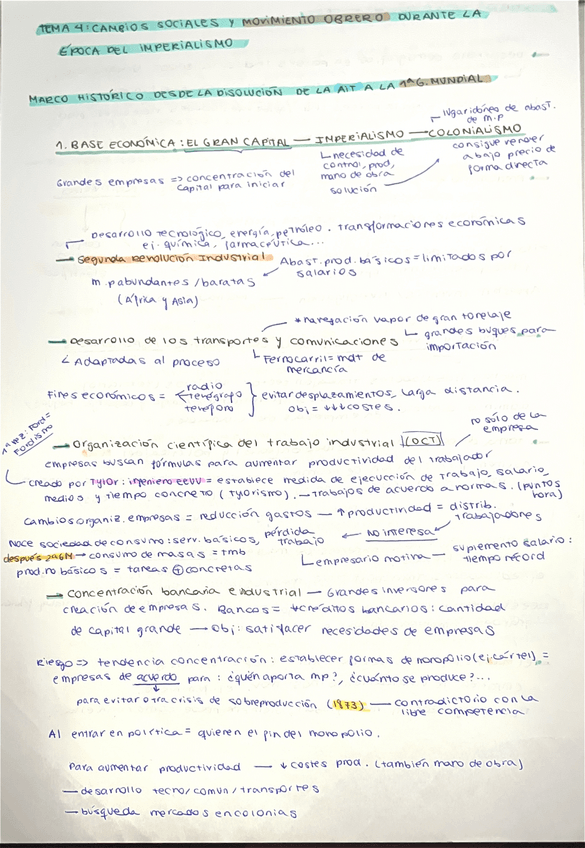 TEMA 4: CAMBIOS SOCIALES Y MOVIMIENTO OBRERO DURANTE LA
ÉPOCA DEL IMPERIALISMO
MARCO HISTÓRICO DESDE LA DISOLUCIÓN DE LA AIT A LA 1ª G. MUNDIAL
lugar idóneo de abast.
de m.p
1. BASE ECONÓMICA: EL GRAN CAPITAL — IMPERIALISMO — COLONIALISMO
necesidad de
control, prod,
mano de obra
solución
consigue vender
a bajo precio de
forma directa
Grandes empresas => concentración del
capital para iniciar
Desarrollo tecnológico, energía, petróleo. Transformaciones económicas
ej. química, farmacéutica...
→ Segunda Revolución Industrial
Abast. prod. básicos = limitados por
salarios
m.p abundantes / baratas
(África y Asia)
* navegación vapor de gran tonelaje
→ Desarrollo de los transportes y comunicaciones
grandes buques para
importación
Adaptadas al proceso
Ferrocarril = mdt de
mercancía
Fines económicos =
radio
telégrafo
teléfono
} evitar desplazamientos, larga distancia.
obj = ↓↓↓ costes.
1ª vez: Ford =
Fordismo
no sólo de la
empresa
→ Organización científica del trabajo industrial (OCT)
empresas buscan fórmulas para aumentar productividad del trabajador
creado por Tylor: ingeniero EEUU = establece medida de ejecución de trabajo, salario,
medios y tiempo concreto (Tylorismo). — trabajos de acuerdo a normas. (puntos
hora)
Cambios organiz. empresas = reducción gastos → ↑ productividad = distrib.
trabajadores
Nace sociedad de consumo: serv. básicos, pérdida
trabajo ← No interesa
después 2ªGM → consumo de masas = tmb
prod. no básicos = tareas + concretas
empresario motiva — suplemento salario:
tiempo récord
→ Concentración bancaria e industrial — Grandes inversores para
creación de empresas. Bancos = ↓ créditos bancarios: cantidad
de capital grande → obj: satisfacer necesidades de empresas
Riesgo => tendencia concentración: establecer formas de monopolio (ej. cártel) =
empresas de acuerdo para: ¿quién aporta mp?, ¿cuánto se produce?...
para evitar otra crisis de sobreproducción (1873) — contradictorio con la
libre competencia
Al entrar en política = quieren el fin del monopolio.
Para aumentar productividad → ↓ costes prod. (también mano de obra)
— desarrollo tecno/comun/transportes
— búsqueda mercados en colonias